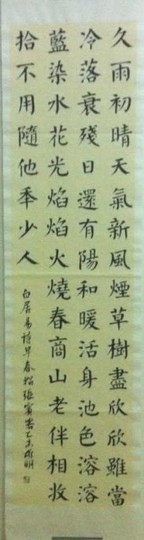 久雨初晴天氣新風煙草樹盡欣欣雖當
冷落衰殘日還有陽和暖活身池色溶溶
藍染水花光焰焰火燒春商山老伴相收
拾不用隨他秊少人
白居易詩早春招張賓客